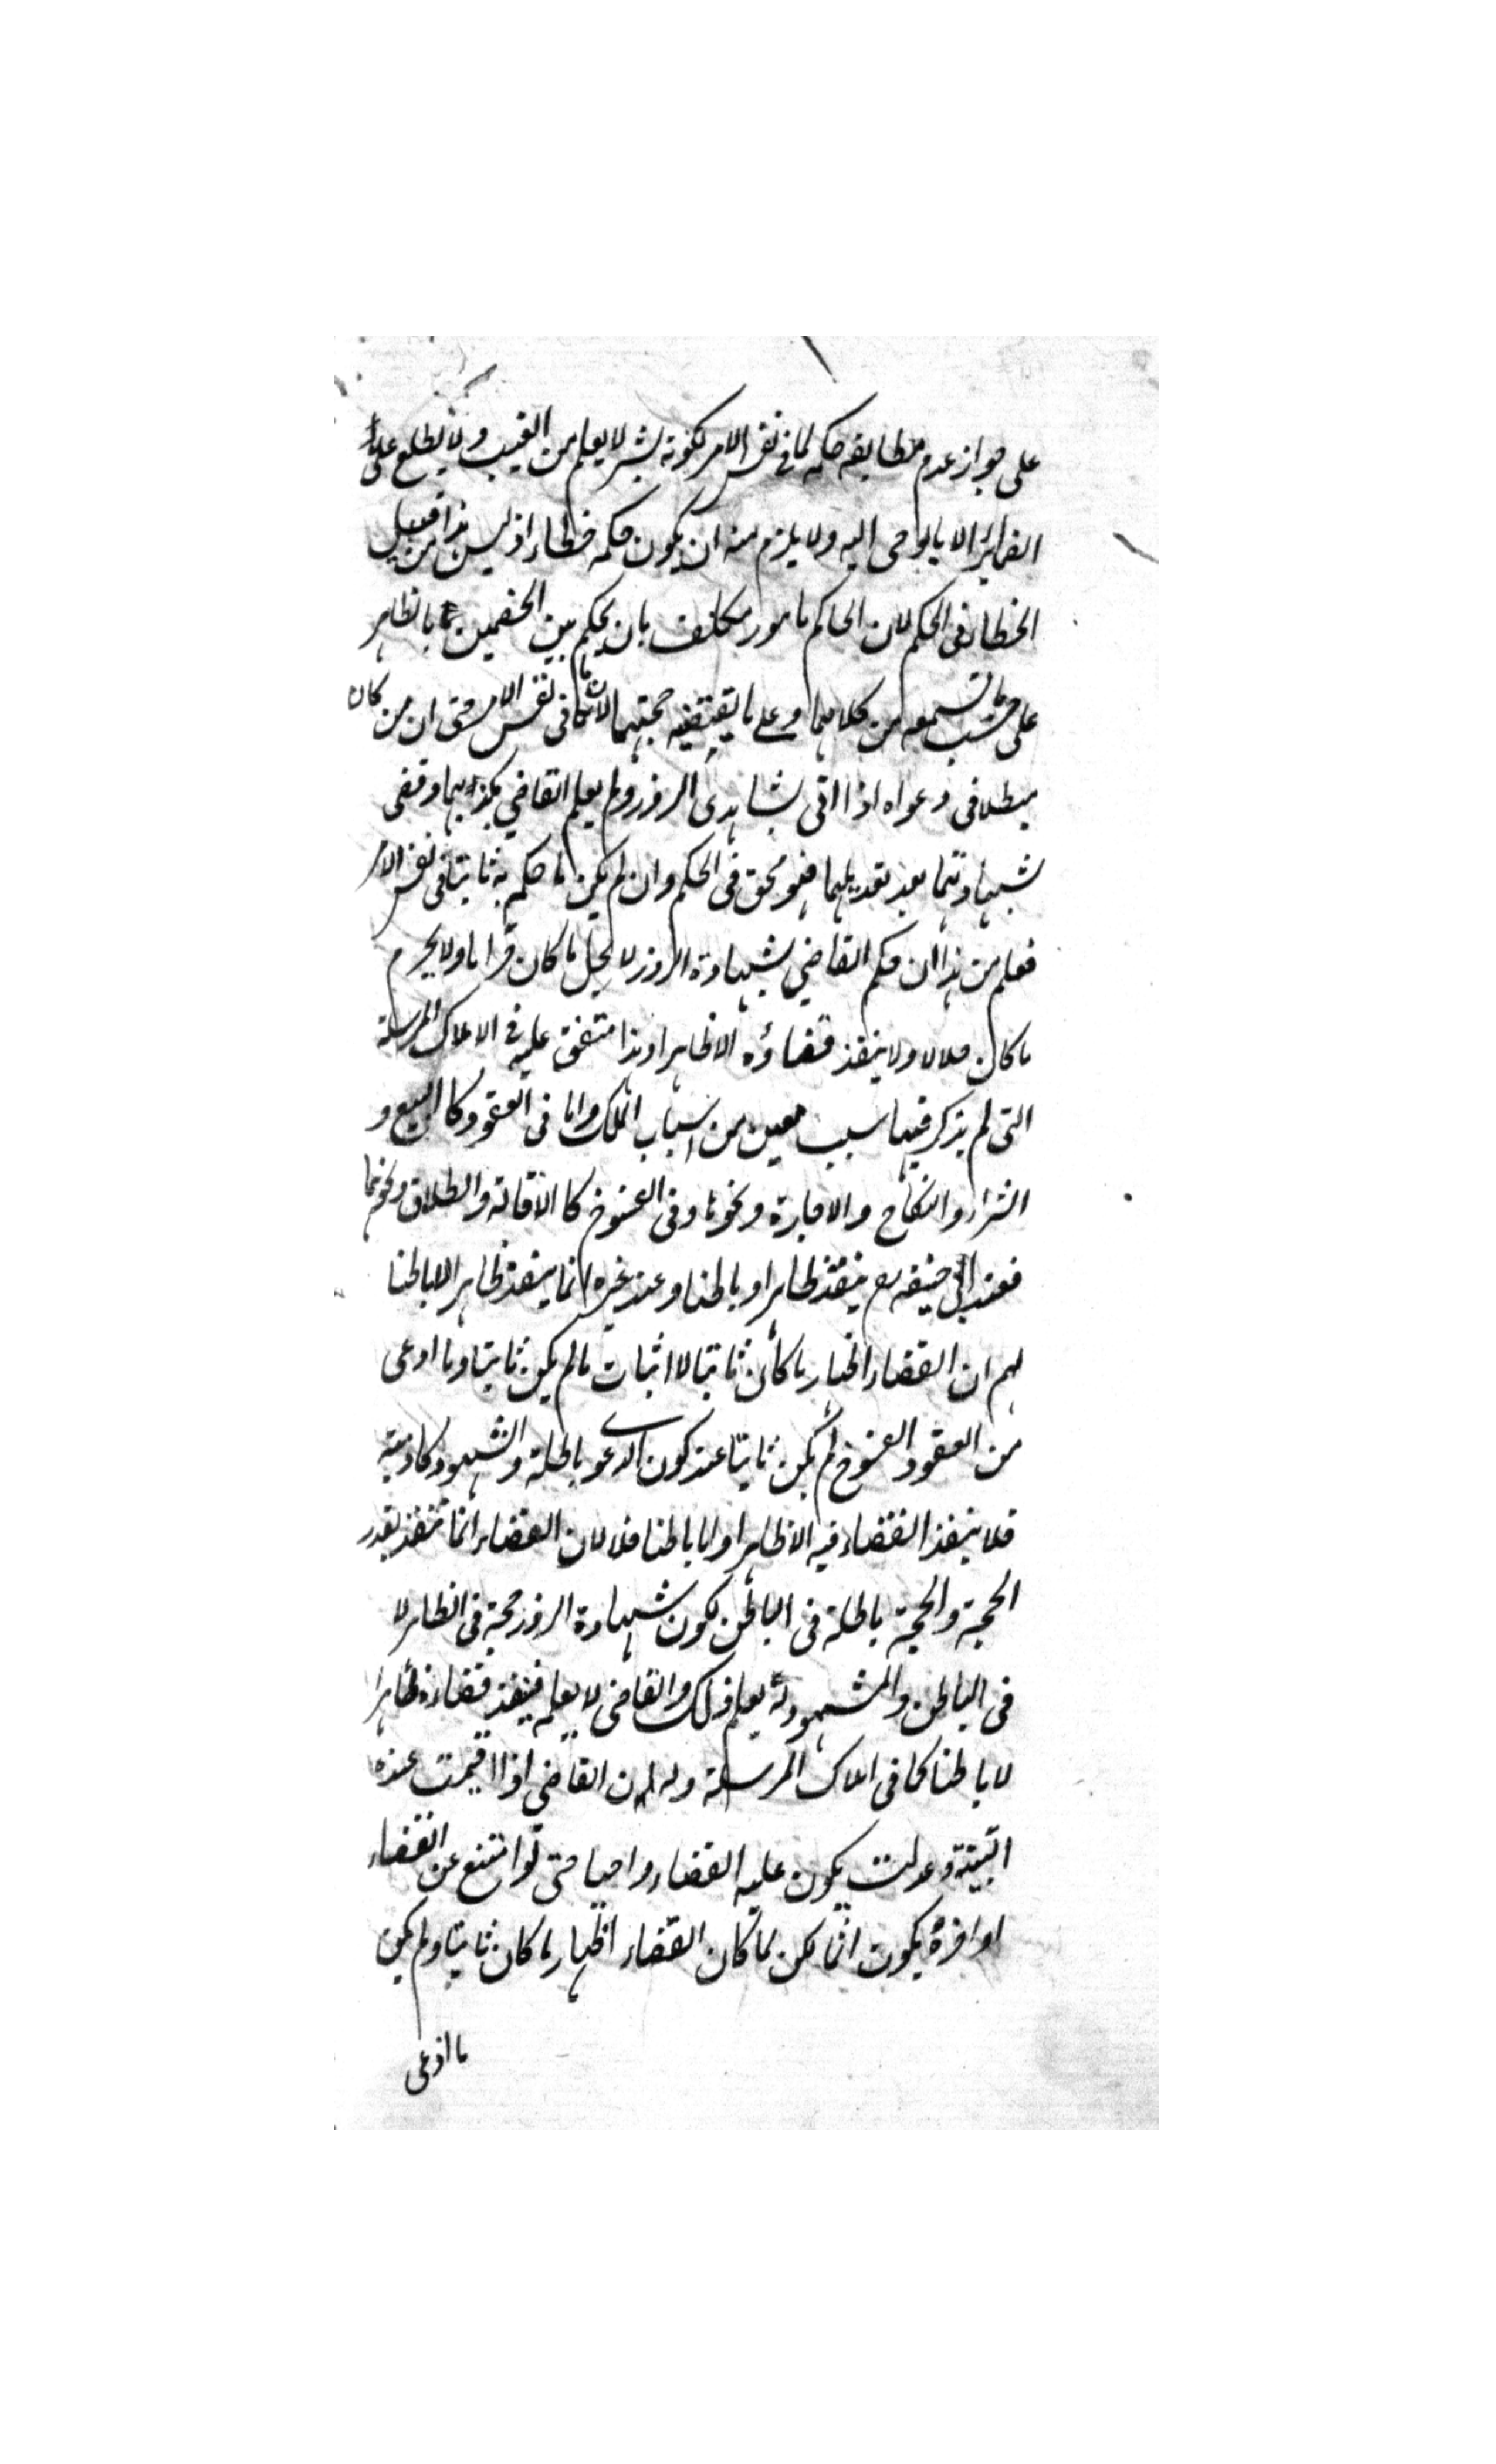 على جواز عدم مطابقه حكمه لما فى نفس الامر لكونه بشر لا يعلم من الغيب ولا يطلع على
الضمائر الا بالوحى اليه ولا يلزم منه ان يكون حكمه خطاء اذ ليس هذا من قبيل
الخطاء فى الحكم لان الحاكم مامور مكلف بان يحكم بين الخصمين بالظاهر
على حسب ما تسمعه من كلامهما وعلى ما يقتضيه حجتهما لا بما فى نفس الامر حتى ان من كان
مبطلا فى دعواه اذا اتى بشاهدى الزور ولم يعلم القاضي بكذبهما وقضى
بشهادتهما بعد تعديلهما فهو محق فى الحكم وان لم يكن ما حكم به ثابتا فى نفس الامر
فعلم من هذا ان حكم القاضي بشهادة الزور لا يحل ما كان حراما ولا يحرم
ما كان حلالا ولا ينفذ قضاؤه الا ظاهرا وهذا متفق عليه فى الاملاك المرسلة
التى لم يذكر فيها سبب معين من اسباب الملك واما فى العقود كالبيع و
الشراء والنكاح والاجارة ونحوها وفى الفسوخ كالاقالة والطلاق ونحوهما
فعند ابى حنيفه رح ينفذ ظاهرا وباطنا وعند غيره انما ينفذ ظاهرا لا باطنا
لهم ان القضاء اظهار ما كان ثابتا لا اثبات ما لم يكن ثابتا وما ادعى
من العقود الفسوخ لم يكن ثابتا عند كون الدعوى باطلة والشهود كاذبة
فلا ينفذ القضاء فيه الا ظاهرا واما باطنا فلا لان القضاء انما تنفذ بقدر
الحجة والحجة باطلة فى الباطن لكون شهادة الزور حجة فى الظاهر لا
فى الباطن والمشهود له يعلم ذلك والقاضى لا يعلم فينفذ قضاءه ظاهرا
لا باطنا كما فى املاك المرسلة وله ان القاضي اذا اقيمت عنده
البينة وعدلت يكون عليه القضاء واجبا حتى لو امتنع عن القضاء
او اخره يكون اثما لكن لما كان القضاء اظهار ما كان ثابتا ولم يكن
ما ادعى